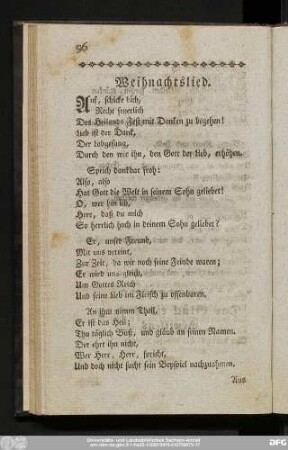 96
Weihnachtslied.
Auf, schicke dich,
Recht feyerlich
Des Heilands Fest mit Danken zu begehen!
Lieb ist der Dank,
Der Lobgesang,
Durch den wir ihn, den Gott der Lieb, erhöhen.
Sprich dankbar froh:
Also, also
Hat Gott die Welt in seinem Sohn geliebet!
O, wer bin ich,
Herr, daß du mich
So herrlich hoch in deinem Sohn geliebet?
Er, unser Freund,
Mit uns vereint,
Zur Zeit, da wir noch seine Feinde waren;
Er wird uns gleich,
Um Gottes Reich
Und seine Lieb im Fleisch zu offenbaren.
An ihm nimm Theil,
Er ist das Heil;
Thu täglich Buß, und gläub an seinen Namen.
Der ehrt ihn nicht,
Wer Herr, Herr, spricht,
Und doch nicht sucht sein Beyspiel nachzuahmen.
Aus
Universitäts- und Landesbibliothek Sachsen-Anhalt
DFG